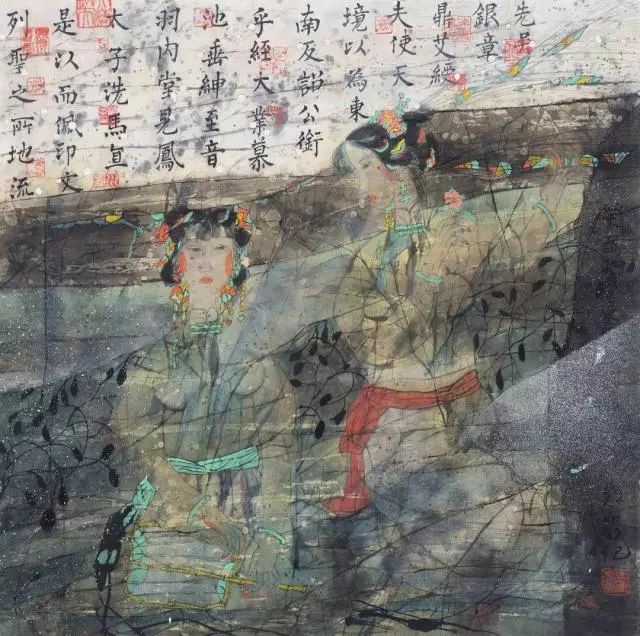 先吳
銀章
鼎艾經
夫使天
境以為東
南及詔公銜
乎經大業慕
池垂紳至音
羽内掌見鳳
太子洗馬
是以而佩印文
列聖之所地流